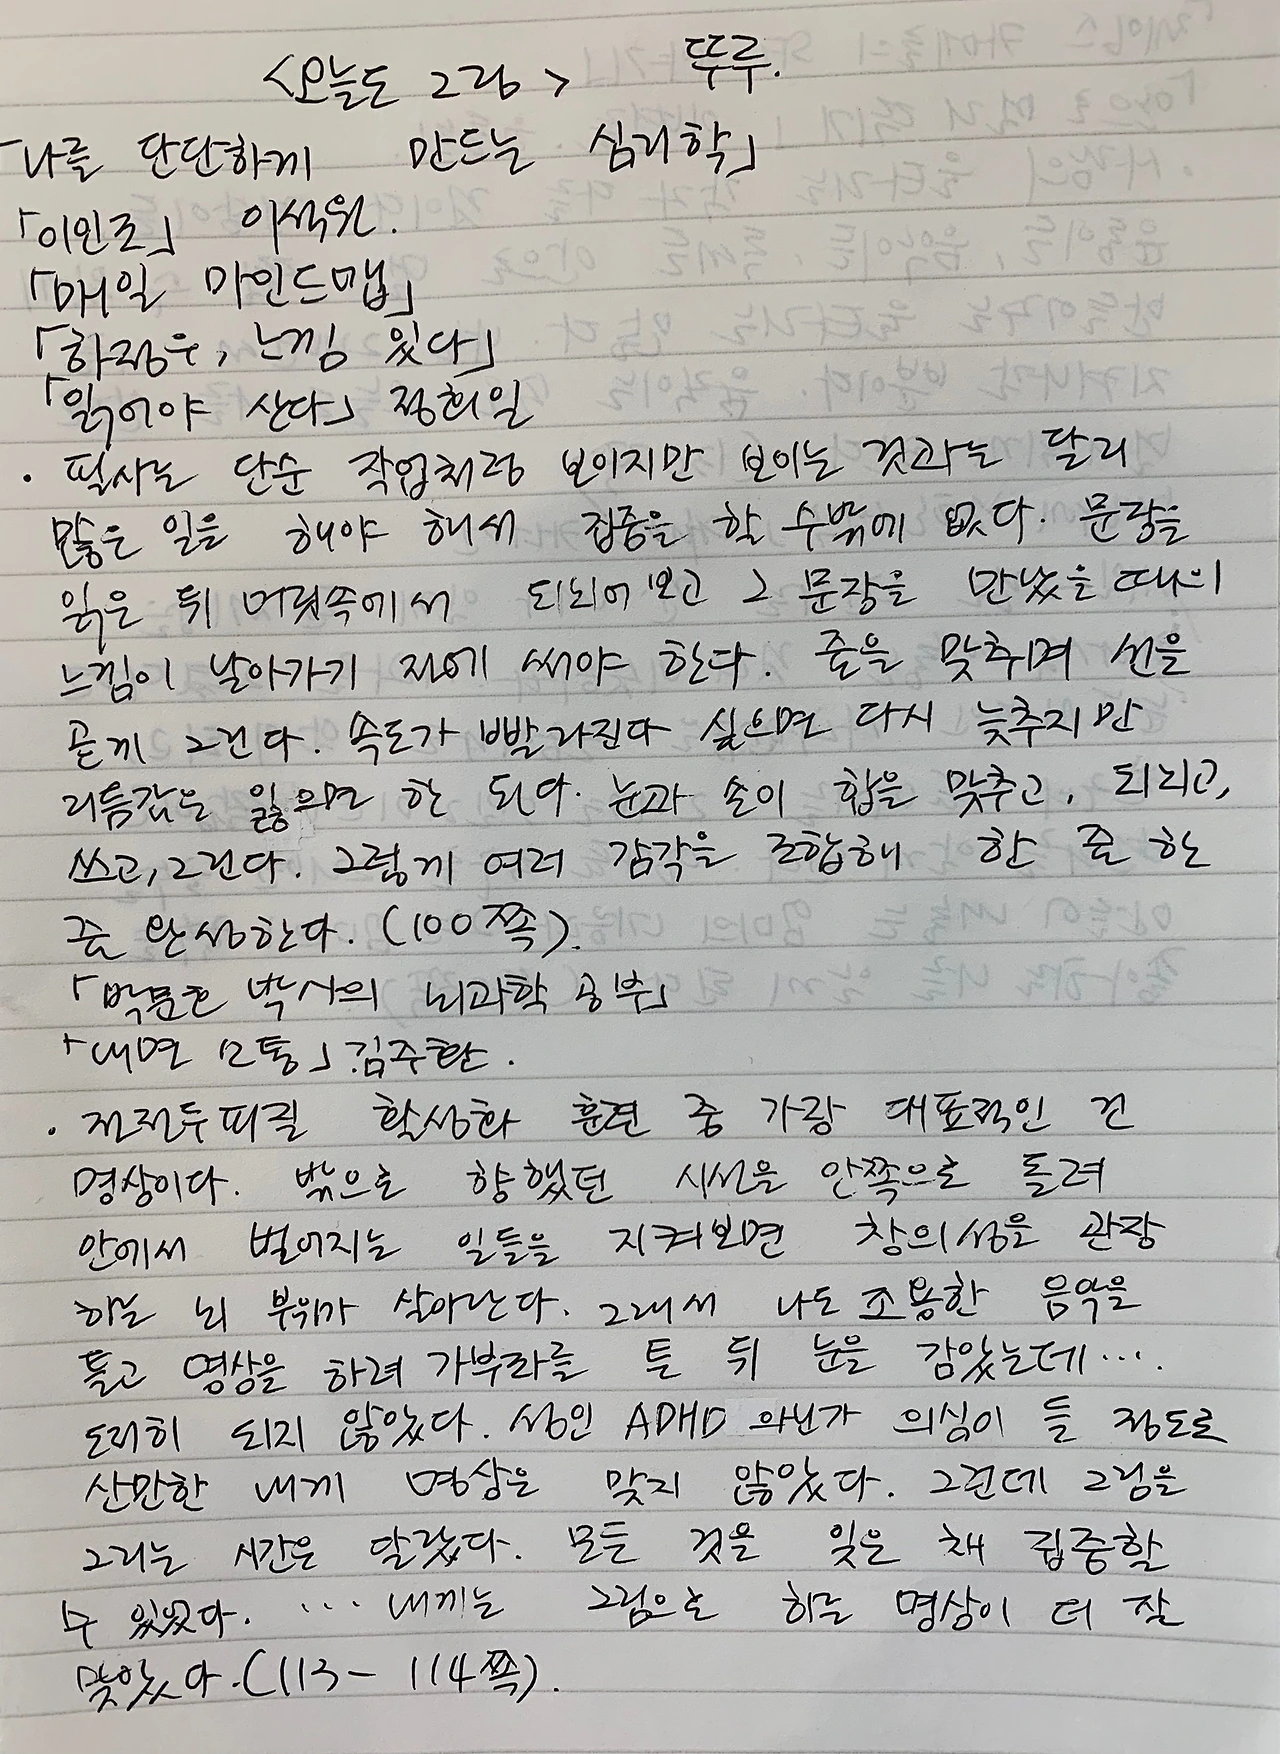 <오늘도 그림> 뚜루.
「나를 단단하게 만드는 심리학」
「이인조」 이석원.
「매일 마인드맵」
「하정우, 느낌 있다」
「읽어야 산다」 정회일
· 필사는 단순 작업처럼 보이지만 보이는 것과는 달리
많은 일을 해야 해서 집중을 할 수밖에 없다. 문장을
읽은 뒤 머릿속에서 되뇌어보고 그 문장을 만났을 때의
느낌이 날아가기 전에 써야 한다. 줄을 맞추며 선을
곧게 그린다. 속도가 빨라진다 싶으면 다시 늦추지만
리듬감은 잃으면 안 된다. 눈과 손이 합을 맞추고, 되뇌고,
쓰고, 그린다. 그렇게 여러 감각을 조합해 한 줄 한
줄 완성한다. (100쪽).
「박문호 박사의 뇌과학 공부」
「내면 소통」 김주환.
· 전전두피질 활성화 훈련 중 가장 대표적인 건
명상이다. 밖으로 향했던 시선을 안쪽으로 돌려
안에서 벌어지는 일들을 지켜보면 창의성을 관장
하는 뇌 부위가 살아난다. 그래서 나도 조용한 음악을
틀고 명상을 하려 가부좌를 튼 뒤 눈을 감았는데….
도저히 되지 않았다. 성인 ADHD 아닌가 의심이 들 정도로
산만한 내게 명상은 맞지 않았다. 그런데 그림을
그리는 시간은 달랐다. 모든 것을 잊은 채 집중할
수 있었다. … 내게는 그림으로 하는 명상이 더 잘
맞았다. (113- 114쪽).